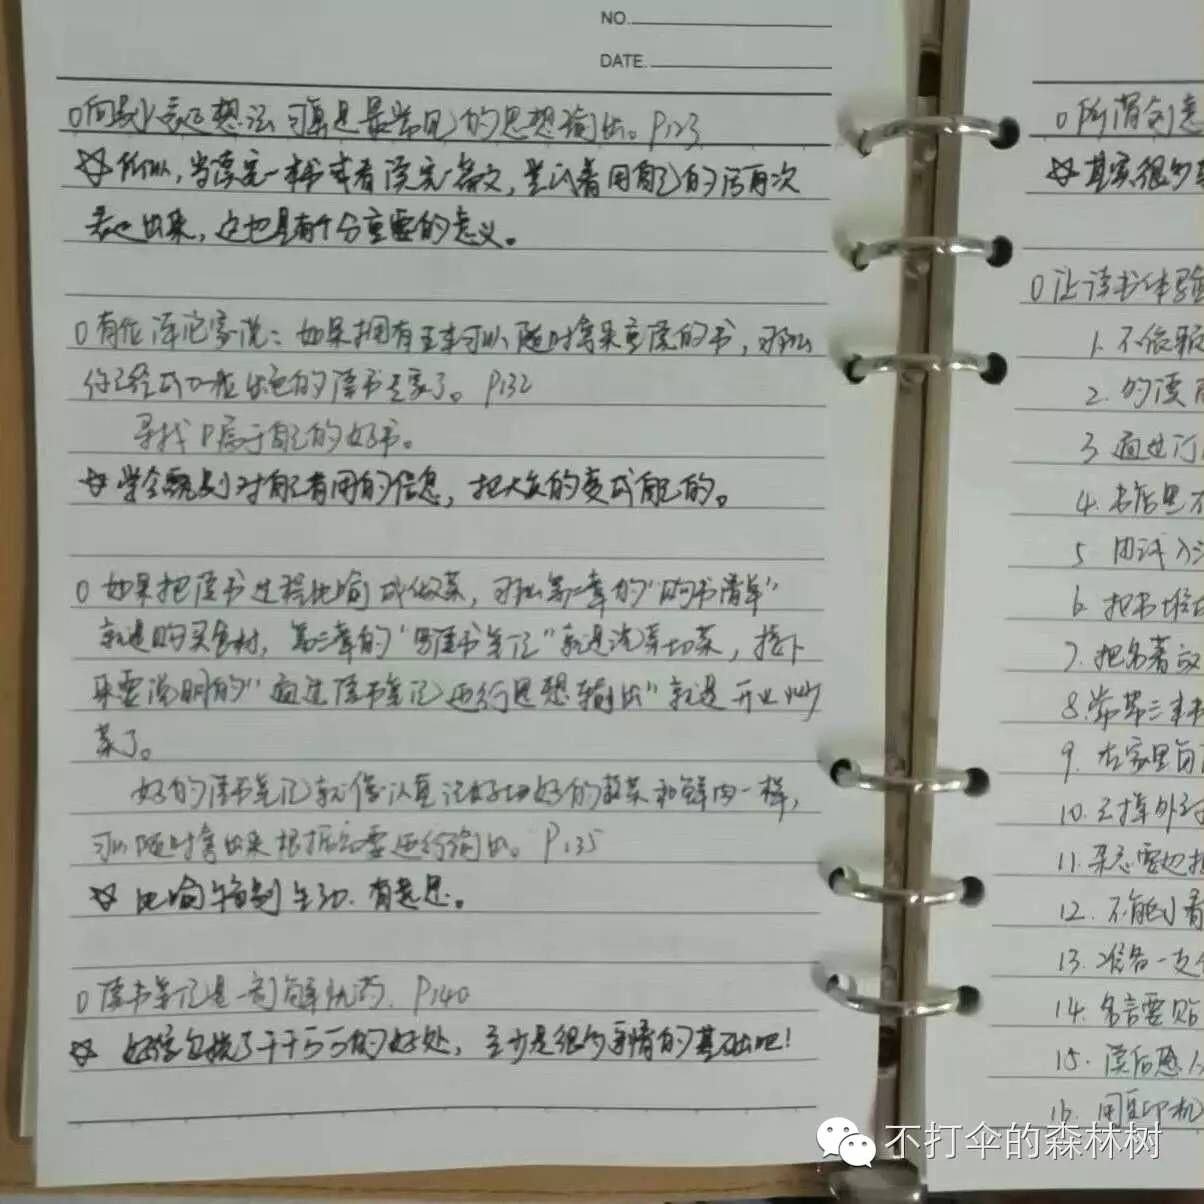 NO.
DATE.
○向别人表达想法可算是最常见的思想输出。P123
☆所以,当读完一本书或看完一篇文,尝试着用自己的话再次
表达出来,这也具有十分重要的意义。
○有位评论家说:如果拥有五本可以随时拿来重读的书,那么
你已经成为一位出色的读书专家了。P132
寻找只属于自己的好书。
☆学会甄别对自己有用的信息,把大众的变成自己的。
○如果把读书过程比喻成做菜,那么第二章的“购书清单”
就是购买食材,第三章的“写读书笔记”就是洗菜切菜,接下
来要说明的“通过读书笔记进行思想输出”就是开火炒
菜了。
好的读书笔记就像认真洗好切好的蔬菜和鲜肉一样,
可以随时拿出来根据需要进行输出。P135
☆比喻特别生动、有意思。
○读书笔记是一剂解忧药. P140
☆好像包揽了千千万万的好处,至少是很多事情的基础吧!
○所谓创意
☆其实很多
○让读书体验
1. 不依赖
2. 的读
3. 通过订
4. 书店里不
5. 用试
6. 把书堆
7. 把名著
8. 常带三本书
9. 在家里
10.
11. 杂志要
12. 不能小看
13. 准备一支
14. 名言要贴
15. 读后感
16. 用复印机
不打伞的森林树